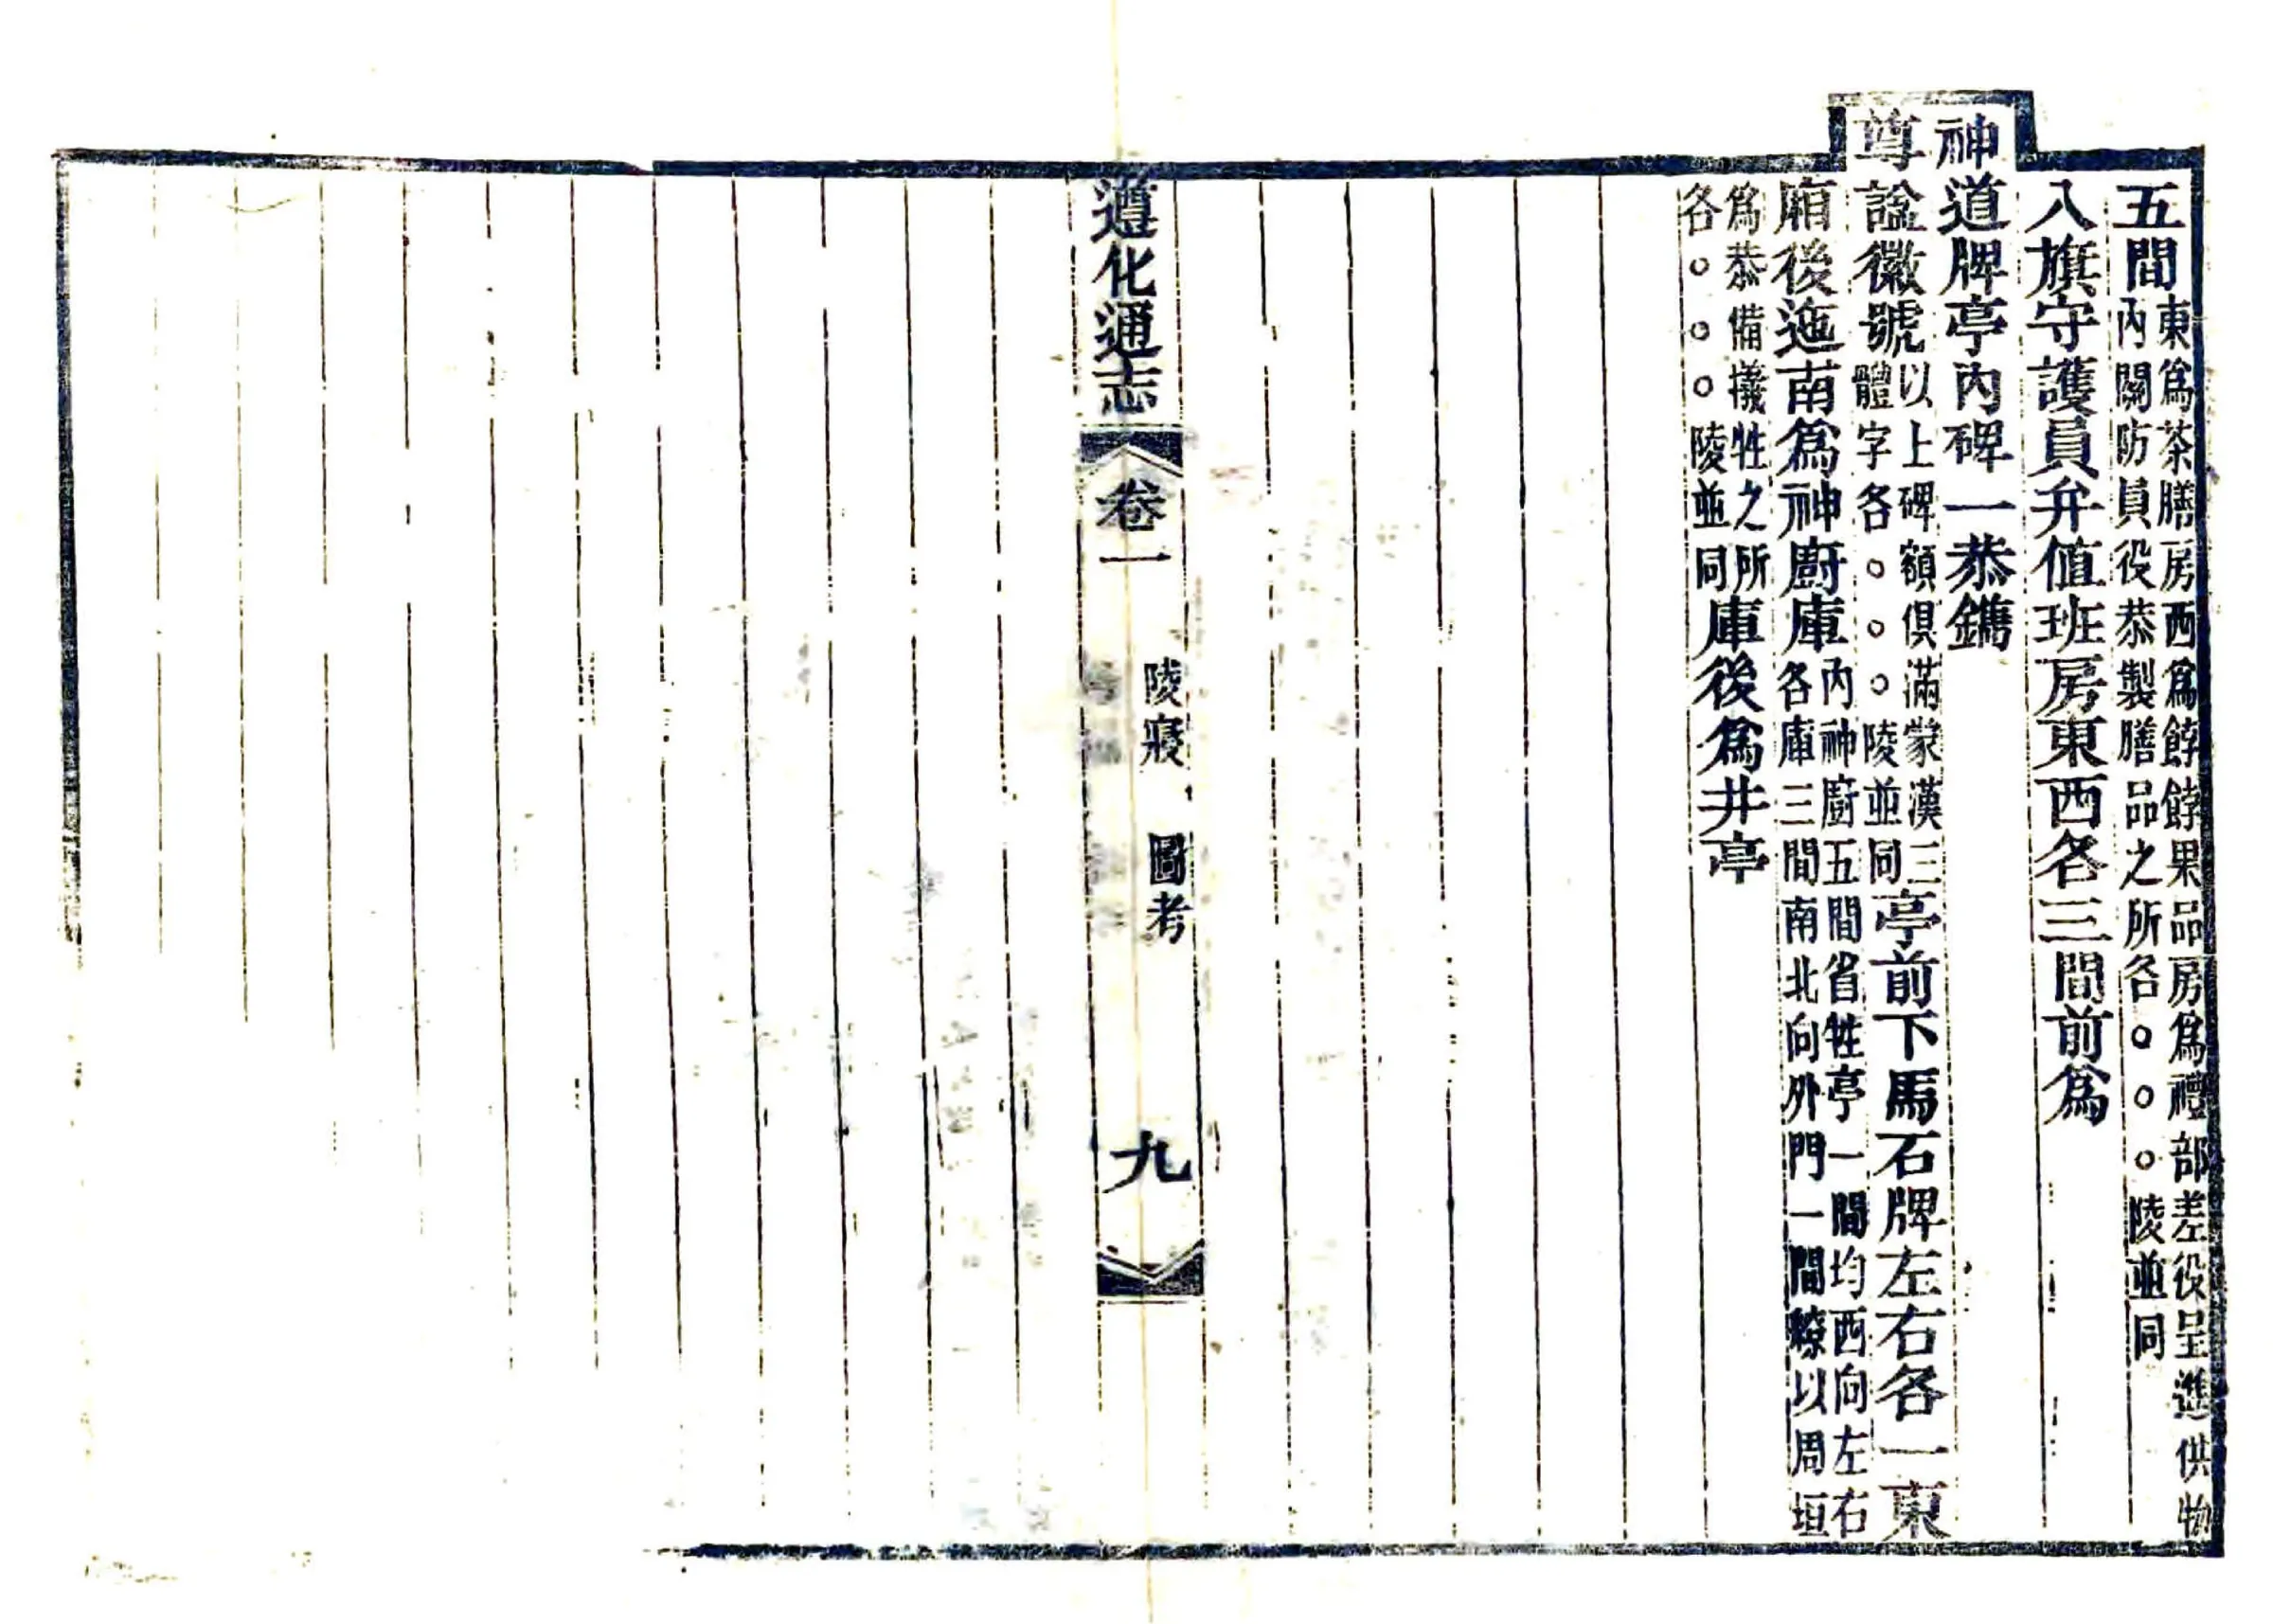 五間東爲茶膳房西爲餑餑果品房爲禮部差役呈進供物內關防員役恭製膳品之所各○○○陵並同
八旗守護員弁值班房東西各三間前爲
神道牌亭內碑一恭鐫
尊諡徽號以上碑額俱滿蒙漢三體字各○○○陵並同亭前下馬石牌左右各一東
廂後迤南爲神廚庫內神廚五間省牲亭一間均西向左右各庫三間南北向外門一間繚以周垣
爲恭備犧牲之所各○○○陵並同庫後爲井亭
遵化通志 卷一 陵寢 圖考 九